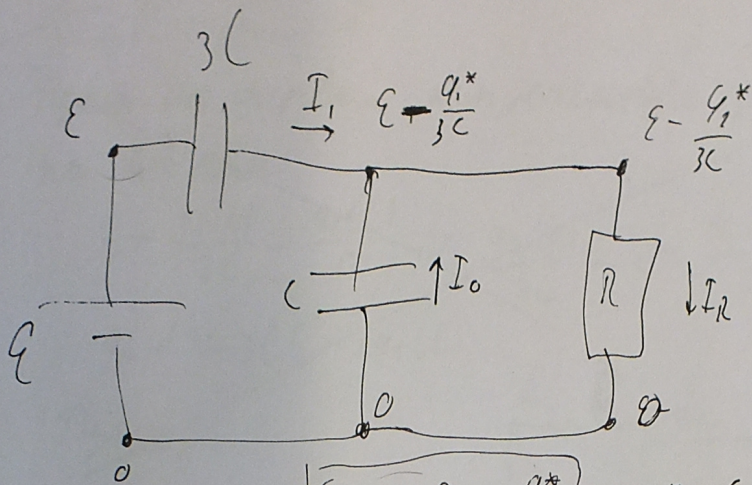 3C
ε I₁ ε - q₁*/3C ε - q₁*/3C
C I₀ R I_R
ε
0 0 0
q*